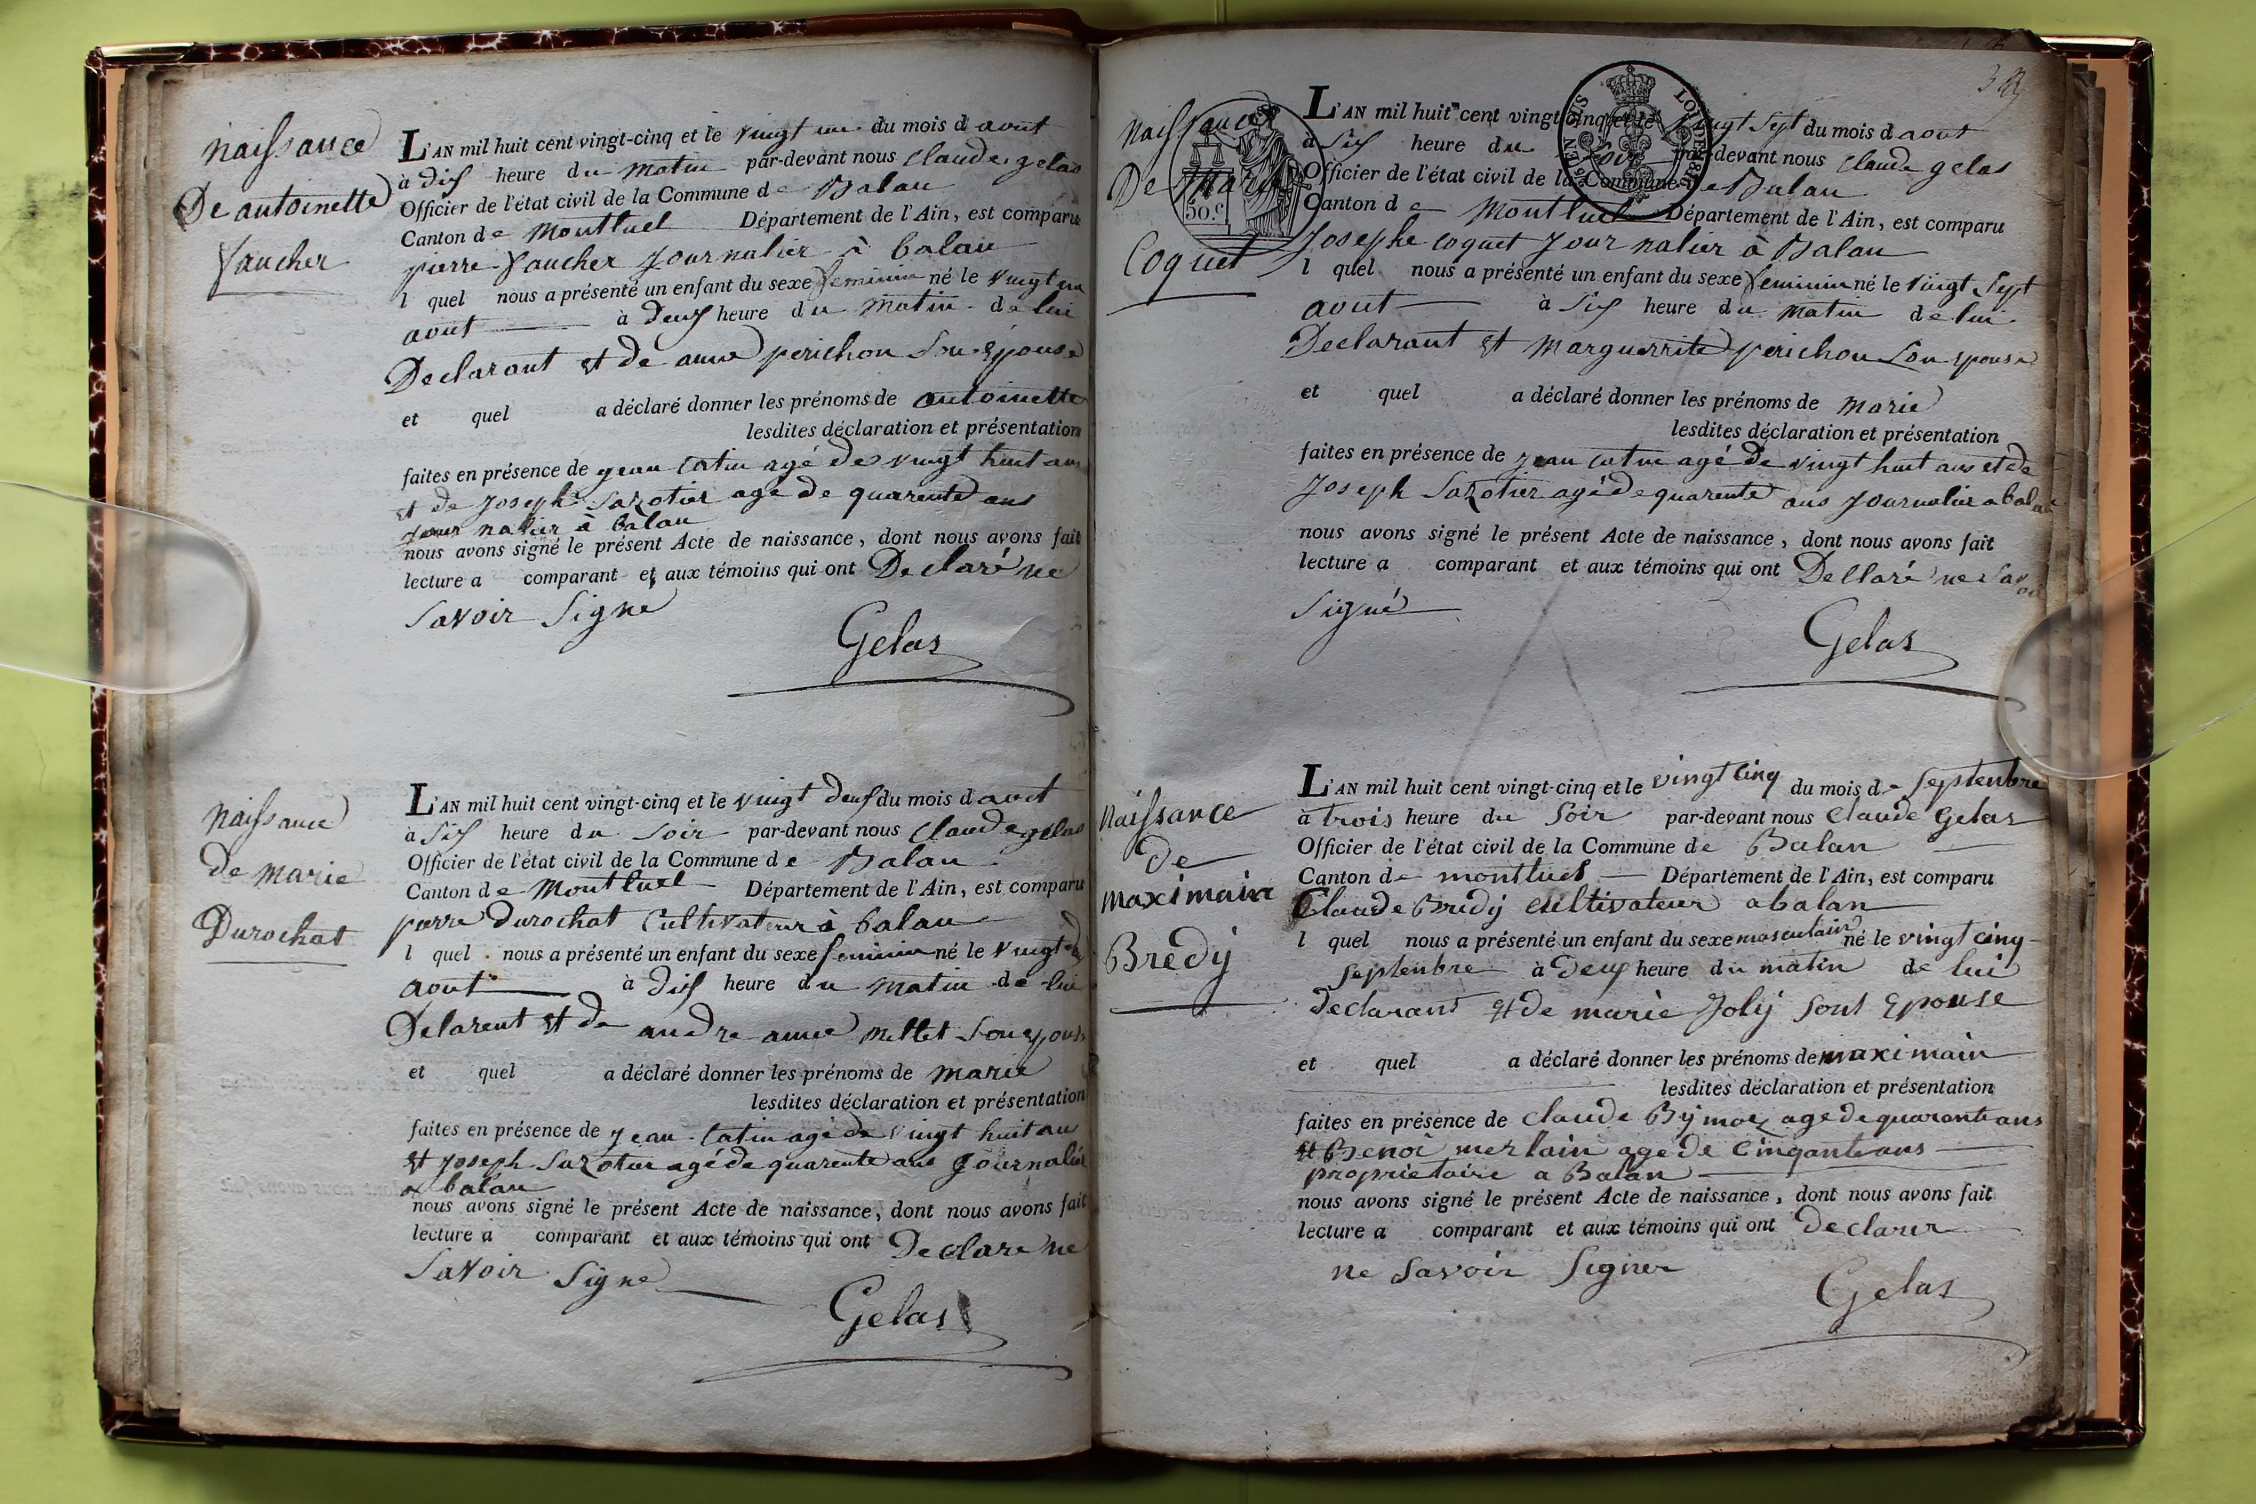 naissance
De antoinette
faucher
L'AN mil huit cent vingt-cinq et le vingt un du mois d aout
à dix heure du matin par-devant nous claude gelas
Officier de l'état civil de la Commune de Balan
Canton de Montluel Département de l'Ain, est comparu
pierre faucher journalier à balan
l quel nous a présenté un enfant du sexe feminin né le vingt un
aout à deux heure du matin de lui
Declarant et de anne perichon son épouse
et quel a déclaré donner les prénoms de antoinette
lesdites déclaration et présentation
faites en présence de jean catin agé de vingt huit ans
et de joseph Sazotier agé de quarente ans
journalier à balan
nous avons signé le présent Acte de naissance, dont nous avons fait
lecture a comparant et aux témoins qui ont Declaré ne
Savoir Signe
Gelas
naissance
de marie
Durochat
L'AN mil huit cent vingt-cinq et le vingt deux du mois d aout
à Six heure du Soir par-devant nous claude gelas
Officier de l'état civil de la Commune de Balan
Canton de Montluel Département de l'Ain, est comparu
pierre durochat Cultivateur à balan
l quel nous a présenté un enfant du sexe feminin né le vingt
aout à dix heure du matin de lui
Delarent et de andre anne millet son epouse
et quel a déclaré donner les prénoms de marie
lesdites déclaration et présentation
faites en présence de jean catin agé de vingt huit an
et joseph Sazotier agé de quarente ans journalier
a balan
nous avons signé le présent Acte de naissance, dont nous avons fait
lecture a comparant et aux témoins qui ont Declare ne
Savoir Signe
Gelas
naissance
De Marie
Coquet
50.c
TIMBRE ROYAL
L'AN mil huit cent vingt-cinq et le vingt Sept du mois d aout
à Six heure du Soir par-devant nous claude gelas
Officier de l'état civil de la Commune de Balan
Canton de Montluel Département de l'Ain, est comparu
Josephe coquet Journalier à Balan
l quel nous a présenté un enfant du sexe feminin né le vingt Sept
aout à Six heure du matin de lui
Declarant et Marguerrite perichon Son epouse
et quel a déclaré donner les prénoms de marie
lesdites déclaration et présentation
faites en présence de jean catin agé de vingt huit ans et de
Joseph Sazotier agé de quarente ans journalier a balan
nous avons signé le présent Acte de naissance, dont nous avons fait
lecture a comparant et aux témoins qui ont Dellaré ne Savoir
Signé
Gelas
naissance
de
maximain
Bredÿ
L'AN mil huit cent vingt-cinq et le vingt cinq du mois de Septenbre
à trois heure du Soir par-devant nous claude Gelas
Officier de l'état civil de la Commune de Balan
Canton de montluel Département de l'Ain, est comparu
Claude Bredÿ cultivateur a balan
l quel nous a présenté un enfant du sexe masculain né le vingt cinq
Septenbre à deux heure du matin de lui
declarant et de marie Jolÿ sont Epouse
et quel a déclaré donner les prénoms de maximain
lesdites déclaration et présentation
faites en présence de claude Bÿmoz age de quarante ans
et Benoi merlain age de cinqante ans
proprietaire a Balan
nous avons signé le présent Acte de naissance, dont nous avons fait
lecture a comparant et aux témoins qui ont declarer
ne Savoir Signer
Gelas